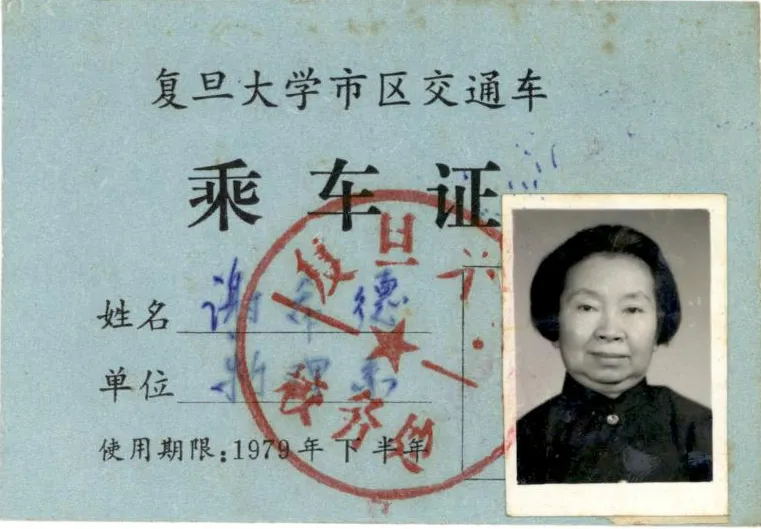 复旦大学市区交通车
乘车证
姓名 谢希德
单位
使用期限:1979年下半年
复旦